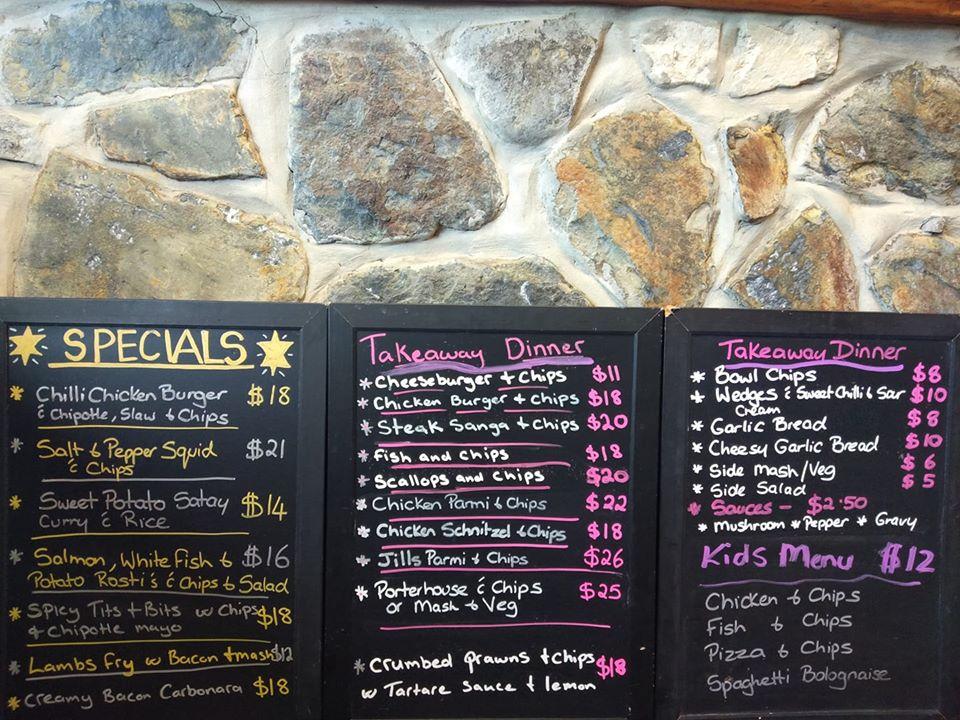 SPECIALS
* Chilli Chicken Burger $18
& Chipotle, Slaw & Chips
* Salt & Pepper Squid $21
& Chips
* Sweet Potato Satay $14
Curry & Rice
* Salmon, White Fish & $16
Potato Rosti's & Chips & Salad
* Spicy Tits + Bits w Chips $18
& Chipotle mayo
* Lambs Fry w Bacon + mash $12
* Creamy Bacon Carbonara $18
Takeaway Dinner
* Cheeseburger + Chips $11
* Chicken Burger + Chips $18
* Steak Sanga + Chips $20
* Fish and Chips $18
* Scallops and Chips $20
* Chicken Parmi & Chips $22
* Chicken Schnitzel & Chips $18
* Jills Parmi & Chips $26
* Porterhouse & Chips $25
or Mash & Veg
* Crumbed Prawns + Chips $18
w Tartare Sauce + lemon
Takeaway Dinner
* Bowl Chips $8
* Wedges & Sweet Chilli & Sar $10
Cream
* Garlic Bread $8
* Cheesy Garlic Bread $10
* Side Mash/Veg $6
* Side Salad $5
* Sauces - $2.50
* Mushroom * Pepper * Gravy
Kids Menu $12
Chicken & Chips
Fish & Chips
Pizza & Chips
Spaghetti Bolognaise